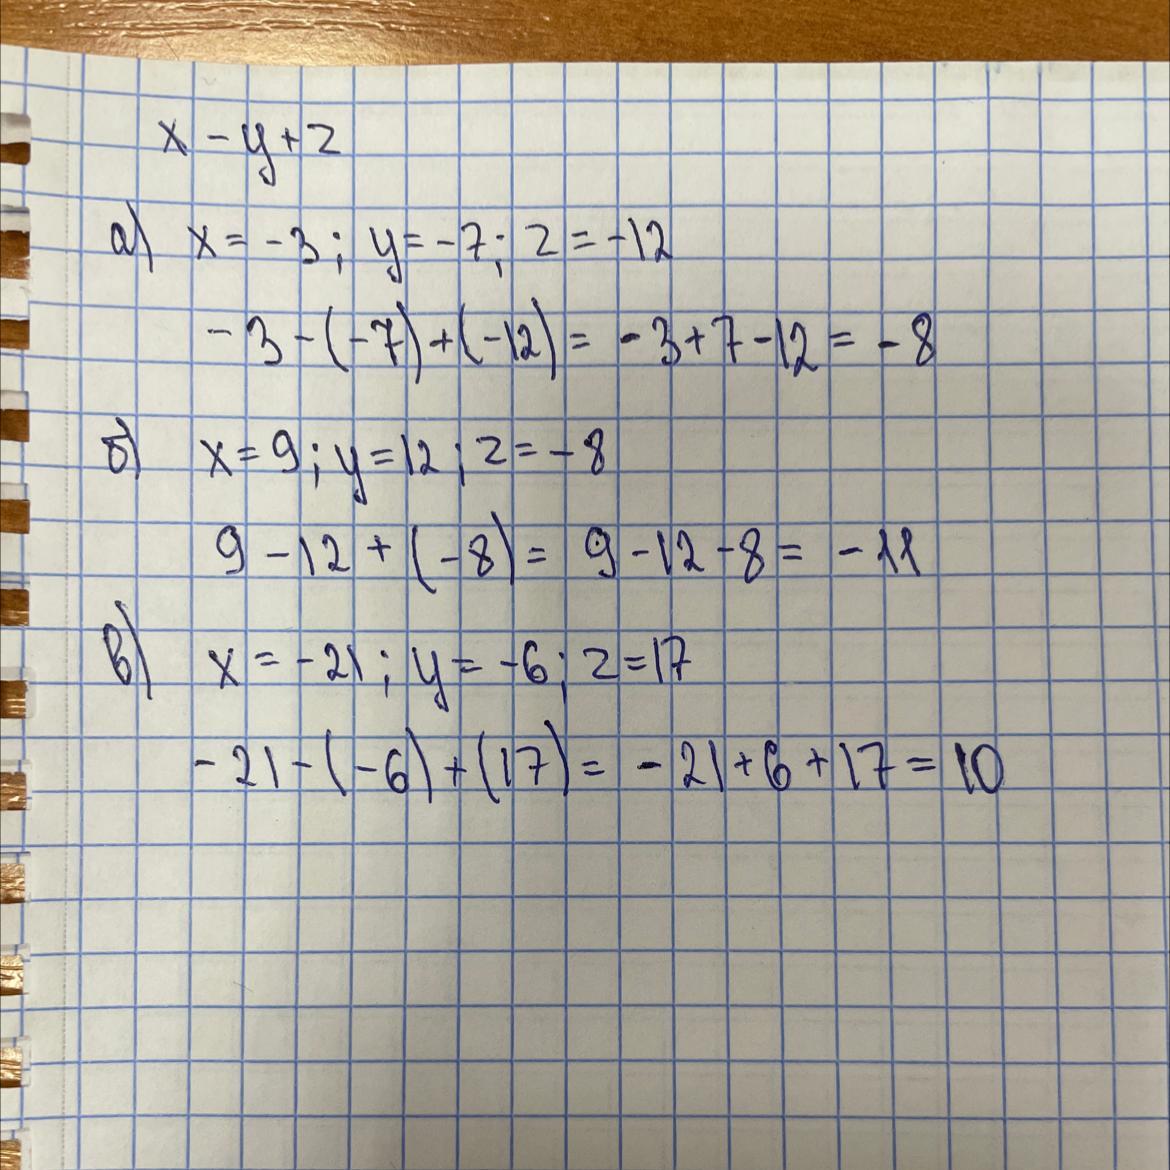 x - y + z
а) x = -3; y = -7; z = -12
-3 - (-7) + (-12) = -3 + 7 - 12 = -8
б) x = 9; y = 12; z = -8
9 - 12 + (-8) = 9 - 12 - 8 = -11
в) x = -21; y = -6; z = 17
-21 - (-6) + (17) = -21 + 6 + 17 = 10